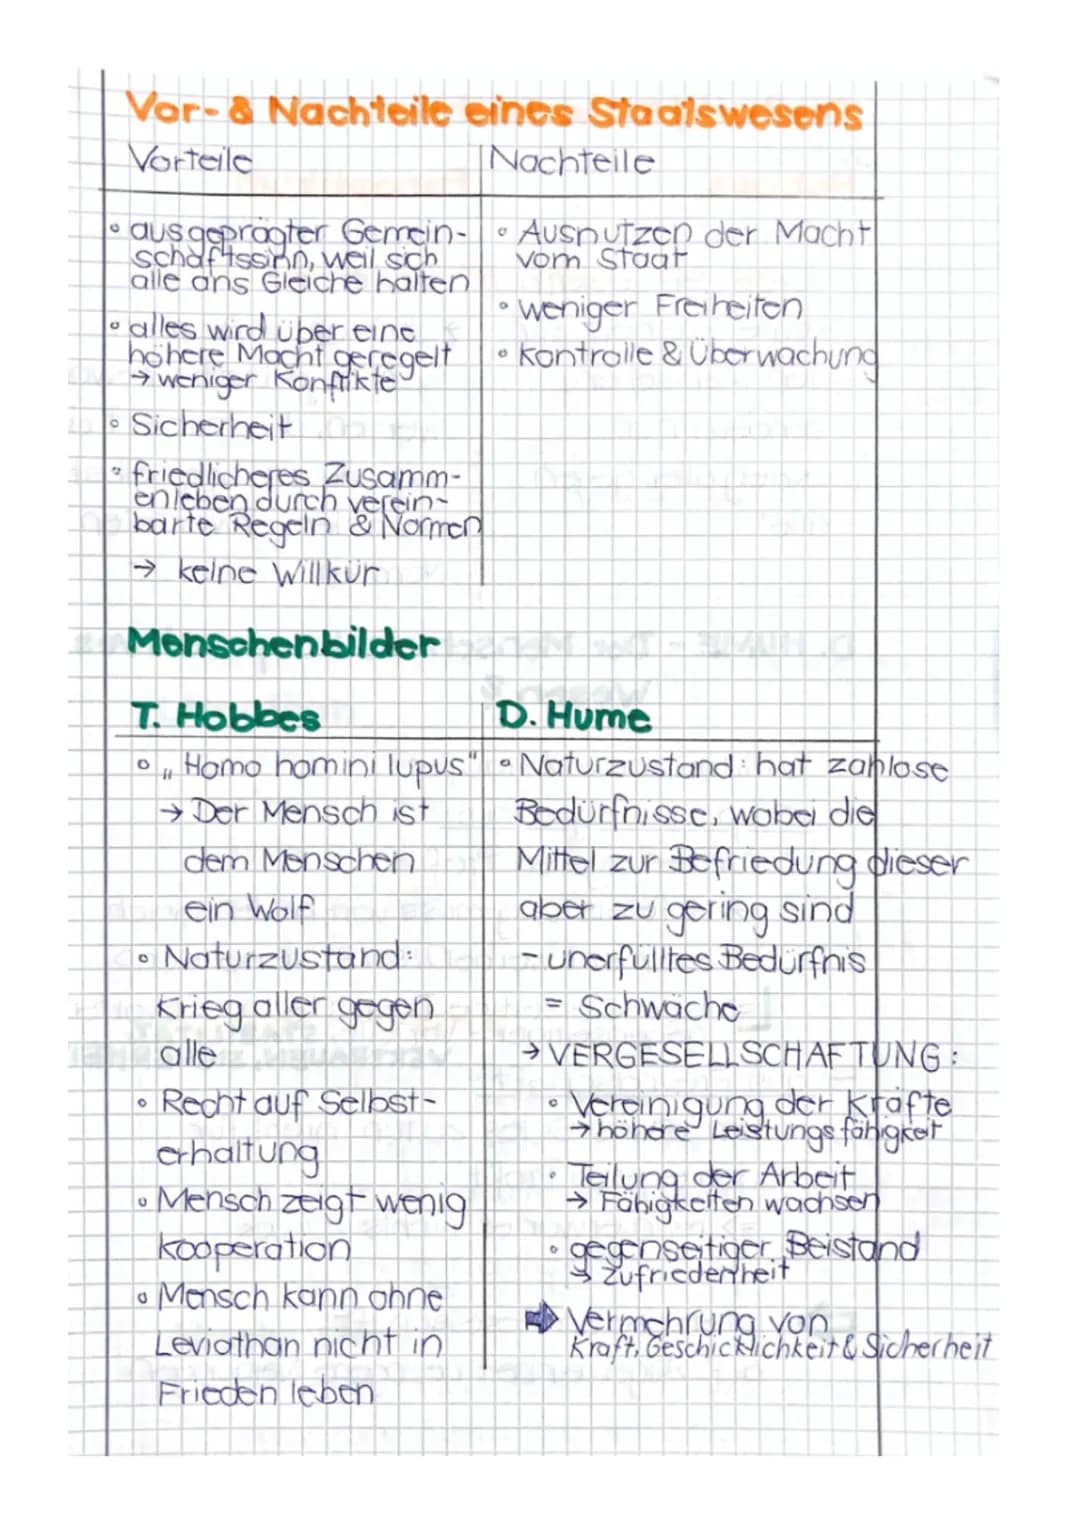 Vor- & Nachteile eines Staatswesens
Vorteile
• ausgeprägter Gemein-
schaftssinn, weil sich
alle ans Gleiche halten
• alles wird über eine
höhere Macht geregelt
→ weniger Konflikte
• Sicherheit
• friedlicheres Zusamm-
enleben durch verein-
barte Regeln & Normen
→ keine Willkür
Nachteile
• Ausnutzen der Macht
vom Staat
• weniger Freiheiten
• Kontrolle & Überwachung
Menschenbilder
T. Hobbes
• „Homo homini lupus"
→ Der Mensch ist
dem Menschen
ein Wolf
• Naturzustand:
Krieg aller gegen
alle
• Recht auf Selbst-
erhaltung
• Mensch zeigt wenig
Kooperation
• Mensch kann ohne
Leviathan nicht in
Frieden leben
D. Hume
• Naturzustand: hat zahlose
Bedürfnisse, wobei die
Mittel zur Befriedung dieser
aber zu gering sind
- unerfülltes Bedürfnis
= Schwäche
→ VERGESELLSCHAFTUNG:
• Vereinigung der Kräfte
→ höhere Leistungsfähigkeit
• Teilung der Arbeit
→ Fähigkeiten wachsen
• gegenseitiger Beistand
→ Zufriedenheit
➡ Vermehrung von
Kraft, Geschicklichkeit & Sicherheit